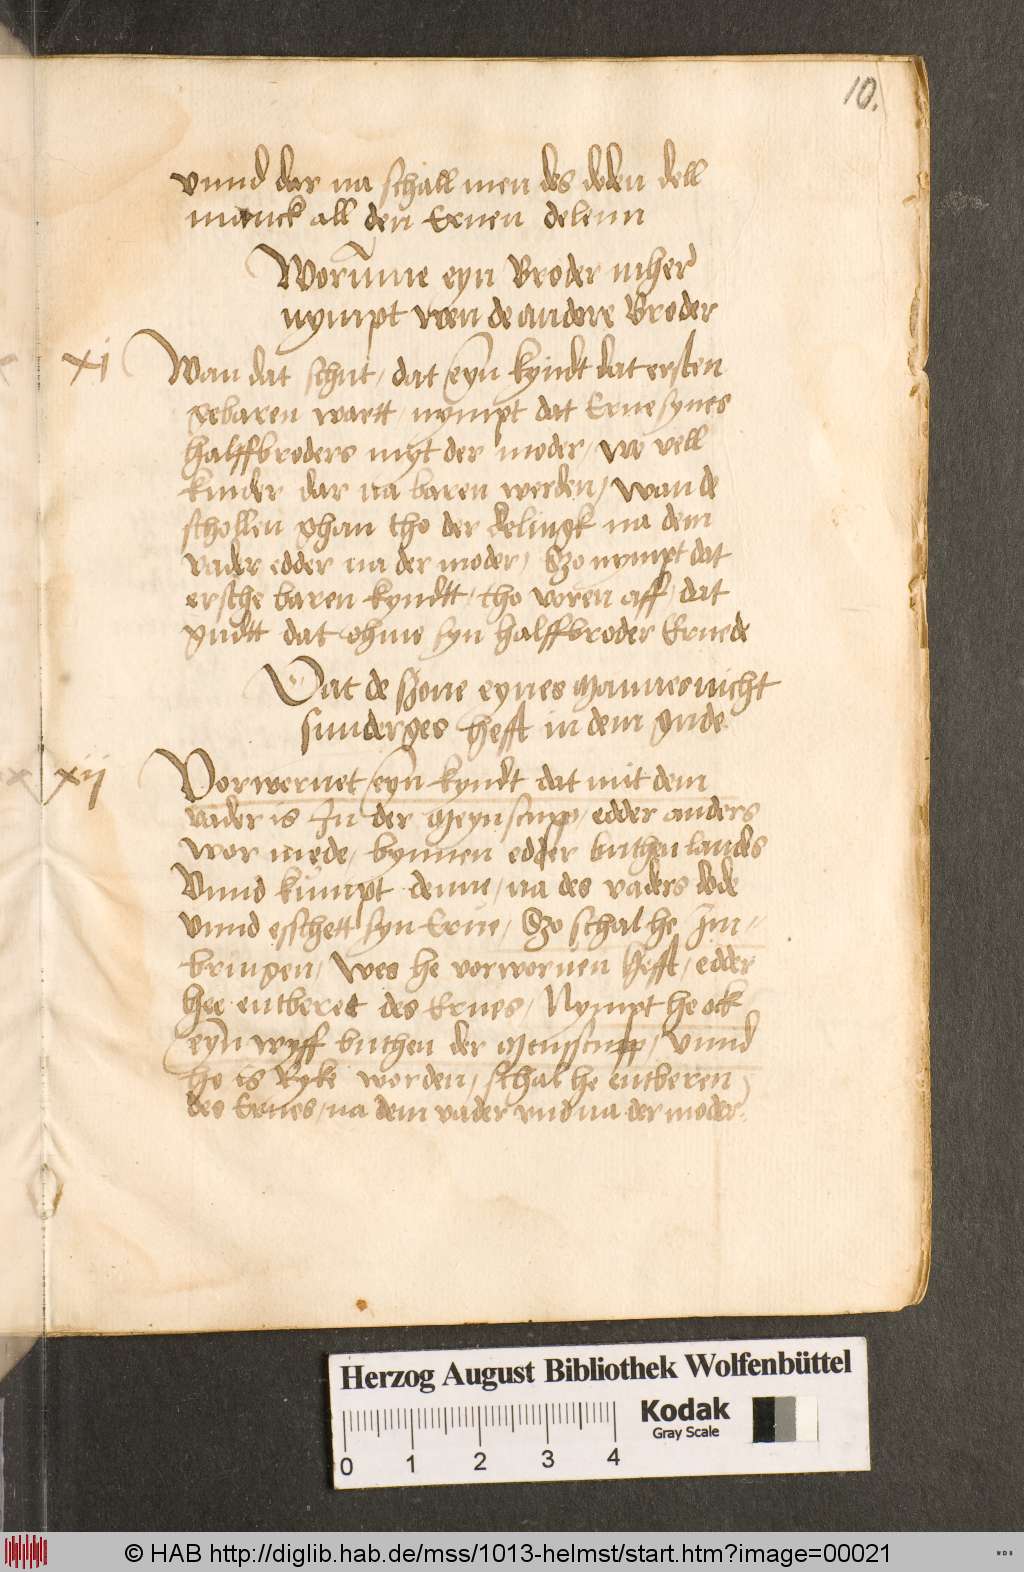 10.
vnnd dar na schall men des doden dell
manck all den Ernen delenn
Worumme eyn Broder mher
nympt wen de andere Broder
xi Wan dat schut, dat eyn kyndt dat ersten
gebaren wartt, nympt dat Erue synes
halffbroders myt der moder, wo vell
kinder dar na baren werden, Wan de
schollen ghan tho der delingk na dem
vader edder na der moder, Szo nympt dat
ersche baren kyndtt, tho voren aff, dat
gudtt dat ohme syn halffbroder Eruede
Dat de szone eynes Mannes nicht
sunderges hefft in dem gude
xii Vorwernet eyn kyndt dat mit dem
vader is In der Meynscupp, edder anders
wor mede, bynnen edder buthen landes
Vnnd kumpt denne, na des vaders dode
Vnnd esschett syn Erue, Szo schal he In-
bringen, Wes he vorworuen hefft, edder
hee entberet des Erues, Nympt he ock
eyn wyff buthen der Menscupp, Vnnd
he is Ryke worden, schal he entberen
des Erues, na dem vader vnd na der moder.
Herzog August Bibliothek Wolfenbüttel
Kodak
Gray Scale
0 1 2 3 4
© HAB http://diglib.hab.de/mss/1013-helmst/start.htm?image=00021